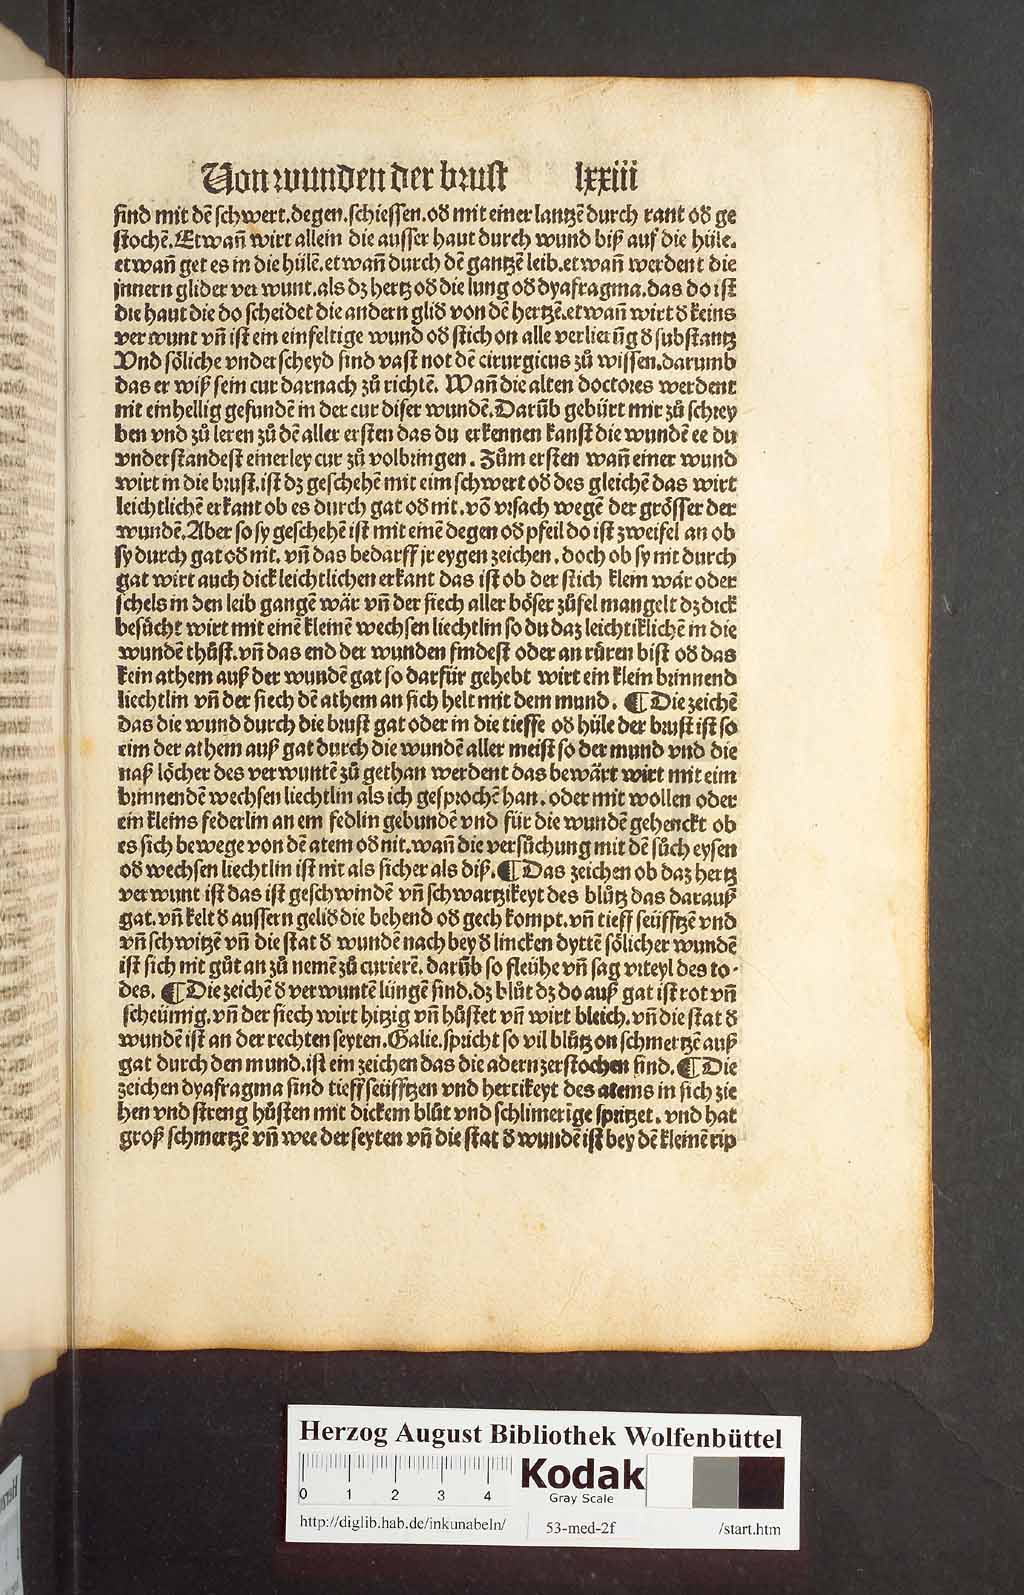 Von wunden der brust lxxiii
sind mit dē schwert.degen.schiessen.od̄ mit einer lantzē durch rant od̄ ge
stochē.Etwan̄ wirt allein die ausser haut durch wund biß auf die hüle.
etwan̄ get es in die hülē.etwan̄ durch dē gantzē leib.etwan̄ werdent die
innern glider ver wunt.als dz hertz od̄ die lung od̄ dyafragma.das do ist
die haut die do scheidet die andern glid̄ von dē hertzē.etwan̄ wirt d̄ keins
ver wunt vn̄ ist ein einfeltige wund od̄ stich on alle verlierūg d̄ substantz
Vnd söliche vnderscheyd sind vast not dē cirurgicus zů wissen.darumb
das er wiß sein cur darnach zů richtē. Wan̄ die alten doctores werdent
nit einhellig gefundē in der cur diser wundē.Darūb gebürt mir zů schrey
ben vnd zů leren zů dē aller ersten das du erkennen kanst die wundē ee du
vnderstandest einerley cur zů volbringen. Zům ersten wan̄ einer wund
wirt in die brust.ist dz geschehē mit eim schwert od̄ des gleichē das wirt
leichtlichē erkant ob es durch gat od̄ nit.vō vrsach wegē der grösser der
wundē.Aber so sy geschehē ist mit einē degen od̄ pfeil do ist zweifel an ob
sy durch gat od̄ nit. vn̄ das bedarff jr eygen zeichen. doch ob sy nit durch
gat wirt auch dick leichtlichen erkant das ist ob der stich klem wär oder
schels in den leib gangē wär vn̄ der siech aller böser zůfel mangelt dz dick
besůcht wirt mit einē kleinē wechsen liechtlin so du daz leichtiklichē in die
wundē thůst.vn̄ das end der wunden findest oder an růren bist od̄ das
kein athem auß der wundē gat so darfür gehebt wirt ein klein brinnend
liechtlin vn̄ der siech dē athem an sich helt mit dem mund. ¶ Die zeichē
das die wund durch die brust gat oder in die tieffe od̄ hüle der brust ist so
eim der athem auß gat durch die wundē aller meist so der mund vnd die
naß löcher des verwuntē zů gethan werdent das bewärt wirt mit eim
brinnendē wechsen liechtlin als ich gesprochē han. oder mit wollen oder
ein kleins federlin an em fedlin gebundē vnd für die wundē gehenckt ob
es sich bewege von dē atem od̄ nit.wan̄ die versůchung mit dē sůch eysen
od̄ wechsen liechtlin ist nit als sicher als diß.¶ Das zeichen ob daz hertz
verwunt ist das ist geschwindē vn̄ schwartzikeyt des blůtz das darauß
gat.vn̄ kelt d̄ aussern gelid̄ die behend od̄ gech kompt.vn̄ tieff seüfftzē vnd
vn̄ schwitzē vn̄ die stat d̄ wundē nach bey d̄ lincken dyttē sölicher wundē
ist sich nit gůt an zů nemē zů curierē. darūb so fleühe vn̄ sag vrteyl des to-
des. ¶ Die zeichē d̄ verwuntē lüngē sind.dz blůt dz do auß gat ist rot vn̄
scheümig.vn̄ der siech wirt hitzig vn̄ hůstet vn̄ wirt bleich.vn̄ die stat d̄
wundē ist an der rechten seyten.Galie.spricht so vil blůtz on schmertzē auß
gat durch den mund.ist ein zeichen das die adern zerstochen sind.¶ Die
zeichen dyafragma sind tieff seüfftzen vnd hertikeyt des atems in sich zie
hen vnd streng hůsten mit dickem blůt vnd schlimerige spritzet. vnd hat
groß schmertzē vn̄ wee der seyten vn̄ die stat d̄ wundē ist bey dē kleinē rip
Herzog August Bibliothek Wolfenbüttel
0 1 2 3 4
Kodak
Gray Scale
http://diglib.hab.de/inkunabeln/ 53-med-2f /start.htm